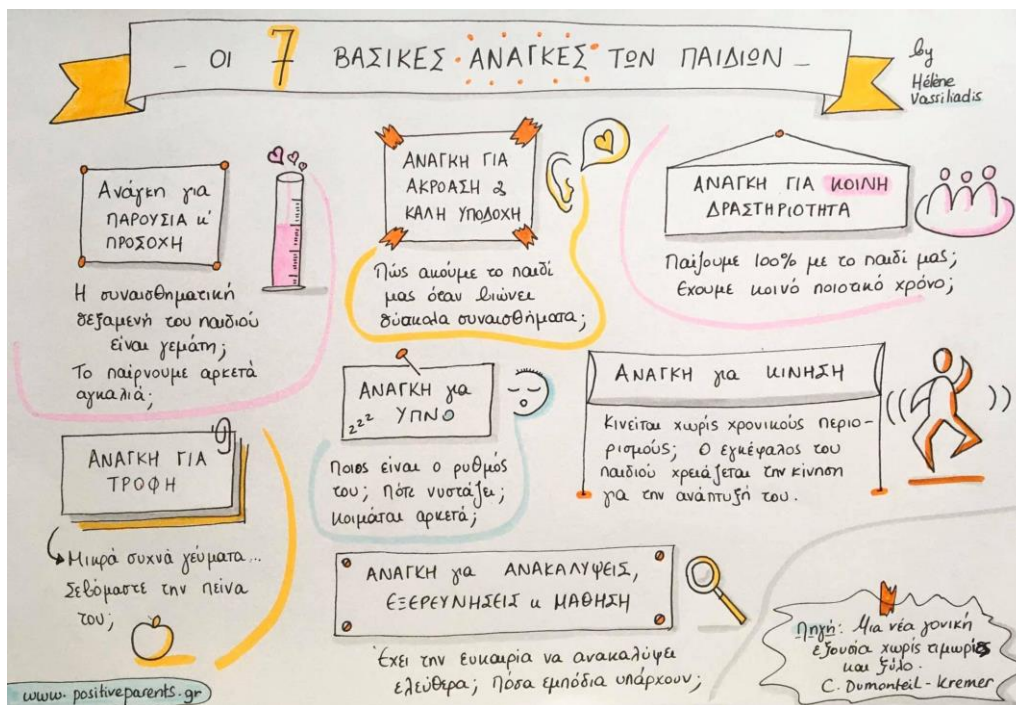 _ ΟΙ 7 ΒΑΣΙΚΕΣ ΑΝΑΓΚΕΣ ΤΩΝ ΠΑΙΔΙΩΝ _
by
Hélène
Vassiliadis
Ανάγκη για
ΠΑΡΟΥΣΙΑ κ'
ΠΡΟΣΟΧΗ
Η συναισθηματική
δεξαμενή του παιδιού
είναι γεμάτη;
Το παίρνουμε αρκετά
αγκαλιά;
ΑΝΑΓΚΗ ΓΙΑ
ΑΚΡΟΑΣΗ &
ΚΑΛΗ ΥΠΟΔΟΧΗ
Πώς ακούμε το παιδί
μας όταν βιώνει
δύσκολα συναισθήματα;
ΑΝΑΓΚΗ ΓΙΑ ΚΟΙΝΗ
ΔΡΑΣΤΗΡΙΟΤΗΤΑ
Παίζουμε 100% με το παιδί μας;
Έχουμε κοινό ποιοτικό χρόνο;
ΑΝΑΓΚΗ ΓΙΑ
ΤΡΟΦΗ
Μικρά συχνά γεύματα...
Σεβόμαστε την πείνα
του;
ΑΝΑΓΚΗ για
zzz ΥΠΝΟ
Ποιος είναι ο ρυθμός
του; Πότε νυστάζει;
κοιμάται αρκετά;
ΑΝΑΓΚΗ για ΚΙΝΗΣΗ
Κινείται χωρίς χρονικούς περιο-
ρισμούς; Ο εγκέφαλος του
παιδιού χρειάζεται την κίνηση
για την ανάπτυξή του.
ΑΝΑΓΚΗ για ΑΝΑΚΑΛΥΨΕΙΣ,
ΕΞΕΡΕΥΝΗΣΕΙΣ κ ΜΑΘΗΣΗ
Έχει την ευκαιρία να ανακαλύψει
ελεύθερα; Πόσα εμπόδια υπάρχουν;
Πηγή: Μια νέα γονική
εξουσία χωρίς τιμωρίες
και ξύλο.
C. Dumonteil-Kremer
www.positiveparents.gr